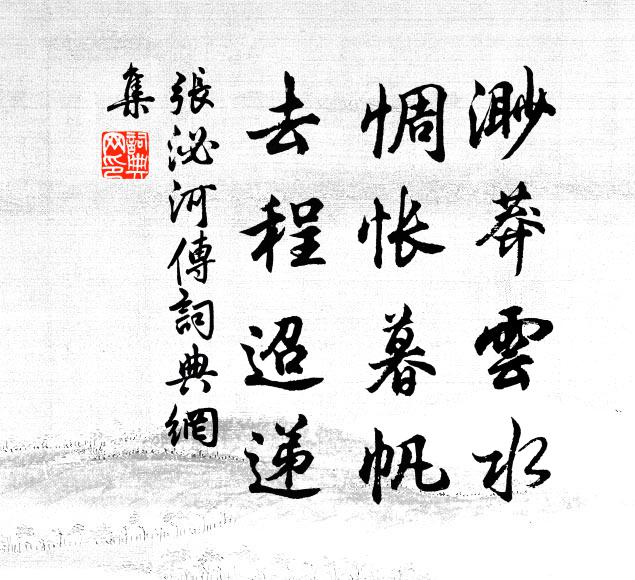 渺莽雲水
惆怅暮帆
去程迢递
張泌河傳詞典網
集
詞典网印